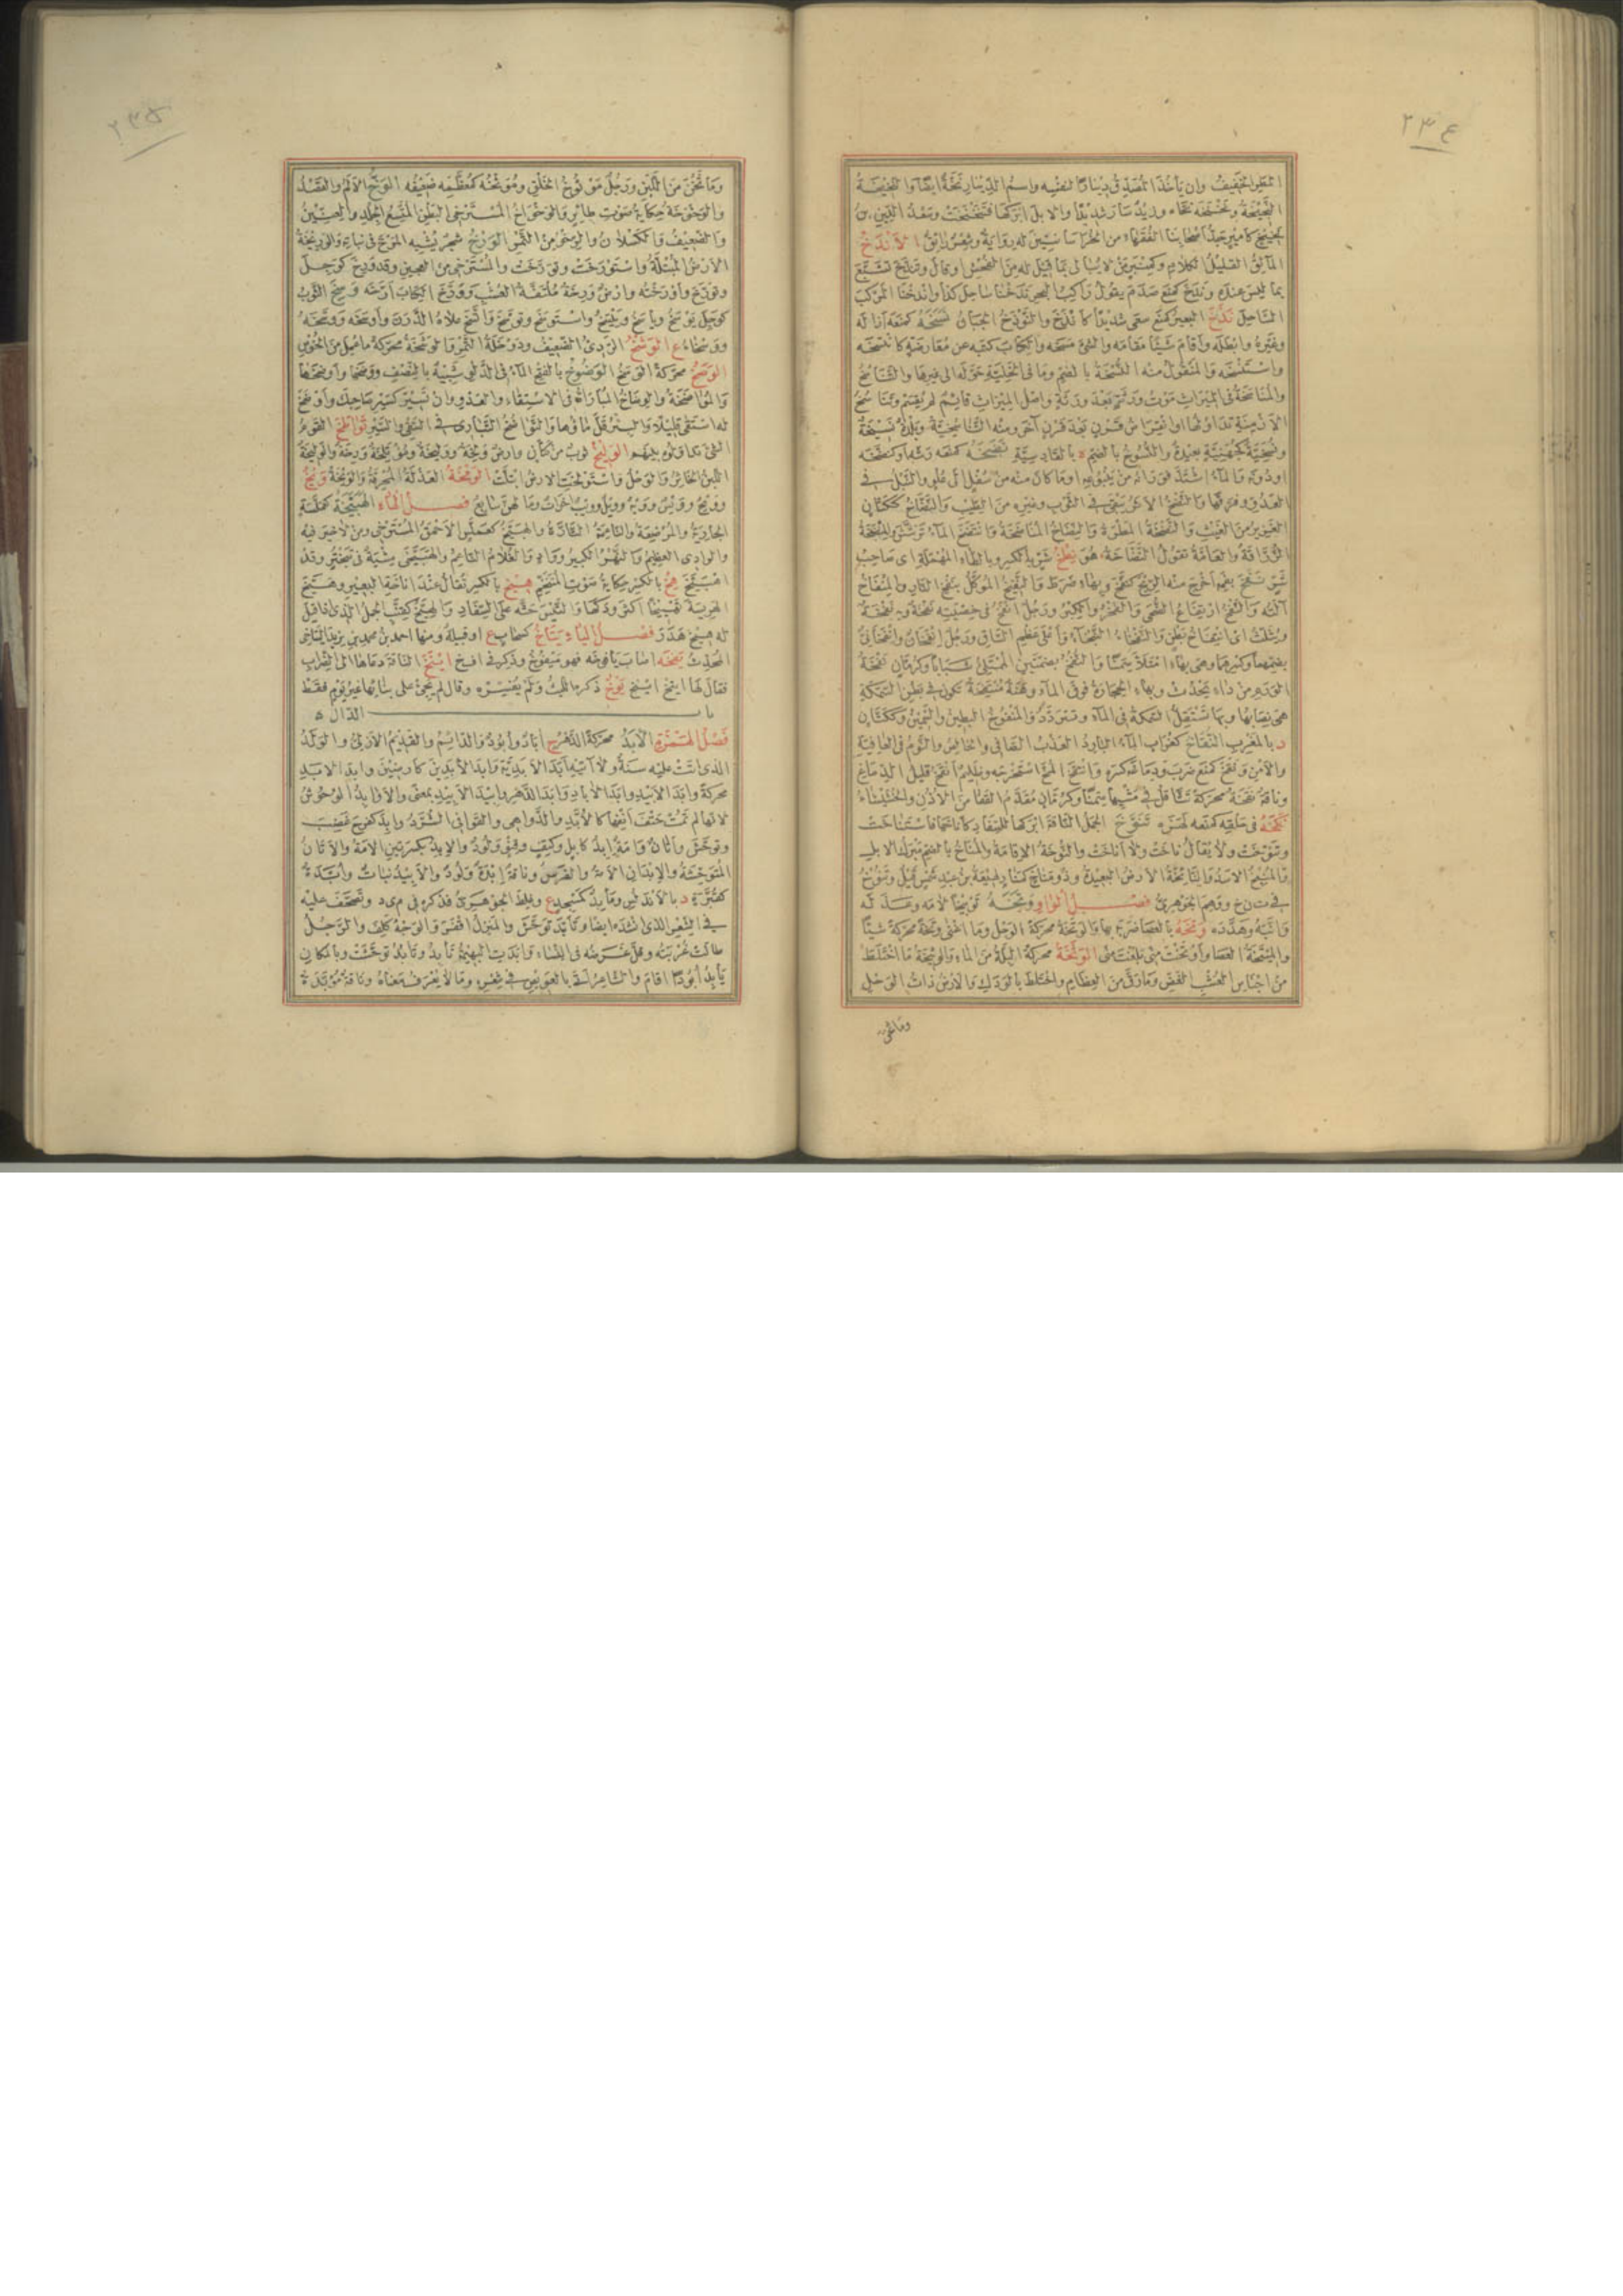 ٢٣٤
المطر الخفيف وان يأخذ المصدق دينارا لنفسه واسم الدينار نخة ايضا والخفيفة
النخنخة ونخنخه نخاه وزيد سار شديدا والابل ابركها فتنخنخت وسعد الدين بن
نخيخ كامير جد اصحابنا الفقهاء من الخراسانيين له رواية وشعر رائق الاندخ
المائق القليل الكلام وكمنبر من لا يبالى بما قيل له من الفحش او قال وتندخ تشبع
بما ليس عنده وندخ كمنع صدم يقول راكب البحر ندخنا ساحل كذا واندخنا المركب
الساحل نذخ البعير كمنع سعى شديدا كانذخ والنوذخ الجبان نسخه كمنعه ازاله
وغيره وابطله واقام شيئا مقامه والشئ مسخه والكتاب كتبه عن معارضة كانتسخه
واستنسخه والمنقول منه النسخة بالضم وما فى الخلية حوله الى غيرها والتناسخ
والمناسخة فى الميراث موت ورثة بعد ورثة واصل الميراث قائم لم يقسم وتناسخ
الازمنة تداولها او انقراض قرن بعد قرن آخر ومنه التناسخية وبلدة نسيخة
ونسخية كجهنية بعيدة والنسوخ بالضم ة بالقادسية نضخه كمنعه رشه او كنضحه
او دونه والماء اشتد فورانه من ينبوعه او ما كان منه من سفل الى علو والنبل فى
العدو فرقها والنضخ الاثر يبقى فى الثوب وغيره من الطيب والنضاخ ككتان
الغزير من الغيث والنضخة المطرة والنضاخ المناضخة وانتضخ الماء ترشش والمنضخة
الزراقة والعامة تقول النضاخة هو نطخ شر بالكسر وبالطاء المهملة اى صاحب
شر نفخ بفمه اخرج منه الريح كنفخ وبها ضرط والنفيخ الموكل بنفخ النار والمنفاخ
آلته والنفخ ارتفاع الضحى والفخر والكبر ورجل انفخ فى خصيتيه نفخة وبه نفخة
ويثلث اى انتفاخ بطن والنفخاء النبخاء واعلى عظم الساق ورجل انفخان وانفخانى
بضمهما وكسرهما وهى بهاء امتلأ سمنا والنفخ بضمتين الممتلئ شبابا وكرمان نفخة
الورم من داء يحدث وبهاء الحجارة فوق الماء وهنة منتفخة تكون فى بطن السمكة
هى نصابها وبها تستقل السمكة فى الماء وتتردد والمنفوخ البطين والسمين وككتان
د بالمغرب النقاخ كغراب الماء البارد العذب الصافى والخالص والنوم فى العافية
والامن ونقخ كمنع ضرب ودماغه كسره وانتقخ المخ استخرجه وظليم انقخ قليل الدماغ
وناقة نقخة محركة تتثاقل فى مشيها سمنا وكرمان مقدم القفا من الاذن والخششاء
نكخه فى حلقه كمنعه لهزه تنوخ الجمل الناقة ابركها للسفاد كاناخها فاستناخت
وتنوخت ولا يقال ناخت ولا اناخت والنوخة الاقامة والمناخ بالضم مبرك الابل
والمنيخ الاسد والنائخة الارض البعيدة وذو مناخ كمنار لهيعة بن عبد شمس قيل وتنوخ
فى ت ن خ ووهم الجوهرى فصل الواو وبخه توبيخا لامه وعذله
وانبه وهدده وتخه بالعصا ضربه بها والوتخة محركة الوحل وما اغنى وتخة محركة شيئا
والميتخة العصا واوتخت منى بلغت منى الوثخة محركة البلة من الماء والوثيخة ما اختلط
من اجناس العشب الغض وما رق من العظام واختلط بالودك والارض ذات الوحل
وما ثخن
٢٣٥
وما ثخن من اللبن ورجل موثوخ الخلق وموثخه كمعظمه ضعيفه الوخ الالم والقصد
والوخوخة حكاية صوت طائر والوخواخ المسترخى البطن المتسع الجلد والعنين
والضعيف والكسلان والرخو من التمر الورخ شجر يشبه المرخ فى نباته والوريخة
الارض المبتلة واستورخت وتورخت والمسترخى من العجين وقد ورخ كوجل
وتورخ واورخته وارض ورخة ملتفة العشب وورخ الكتاب ارخه وسخ الثوب
كوجل يوسخ وياسخ وييسخ واستوسخ وتوسخ واتسخ علاه الدرن واوسخه ووسخه
ووسخاء ع الوشخ الردئ الضعيف ودوخلة التمر والوشخة محركة ما عمل من الخوص
الوصخ محركة الوسخ الوضوخ بالفتح الماء فى الدلو شبيه بالنصف ووضخها واوضخها
والمواضخة والوضاخ المباراة فى الاستقاء والعدو وان تسير كسير صاحبك واوضخ
له استقى قليلا والبئر قل ماؤها والتواضخ التبارى فى السقى والسير تواطخ القوم
الشئ تداولوه بينهم الوليخ ثوب من كتان وارض ولخة ووليخة ومؤتلخة ورخة والوليخة
اللبن الخاثر والوحل واستولخت الارض ابتلت الومخة العذلة المحرقة والونخة ويخ
وويح وويس وويه وويل وويب اخوات وما لهن سابع فصل الهاء الهبيخة كعملسة
الجارية والمرضعة والناعمة التارة والهبيخ كعملس الاحمق المسترخى ومن لا خير فيه
والوادى العظيم والنهر الكبير وواد والغلام الناعم والهبيخى مشية فى تبختر وقد
اهبيخ هخ بالكسر حكاية صوت المتنخم هيخ بالكسر تقال عند اناخة البعير وهيخ
الهريسة تهييخا اكثر ودكها والتيس حثه على السفاد والهيخ ككيس الجمل الذى اذا قيل
له هيخ هدر فصل الياء يتاخ كسحاب ع او قبيلة ومنها احمد بن محمد بن يزيد اليتاخى
المحدث يفخه اصاب يافوخه فهو ميفوخ وذكر فى افخ اينخ الناقة دعاها الى الضراب
فقال لها اينخ اينخ يوخ ذكره الليث ولم يفسره وقال لم يجئ على بنائها غير يوم فقط
باب الدال
فصل الهمزة الابد محركة الدهر ج آباد وابود والدائم والقديم الازلى والولد
الذى اتت عليه سنة ولا آتيه ابد الابدية وابد الابدين كارضين وابد الابد
محركة وابد الابيد وابد الآباد وابد الدهر وابيد الابيد بمعنى والاوابد الوحوش
لانها لم تمت حتف انفها كالابد والدواهى والقوافى الشرد وابد كفرح غضب
وتوحش واتان وامة ابد كابل وكتف وقنو ولود والابد بكسرتين الامة والاتان
المتوحشة والابدان الامة والفرس وناقة ابدة ولود والابيد نبات وابدة
كقبرة د بالاندلس ومأبد كمسجد ع وغلط الجوهرى فذكره فى م ى د وتصحف عليه
فى الشعر الذى انشده ايضا وتأبد توحش والمنزل اقفر والوجه كلف والرجل
طالت غربته وقل غرضه فى النساء وابدت البهيمة تابد وتابد توحشت وبالمكان
يأبد ابودا اقام والشاعر اتى بالعويص فى شعره وما لا يعرف معناه وناقة مؤبدة